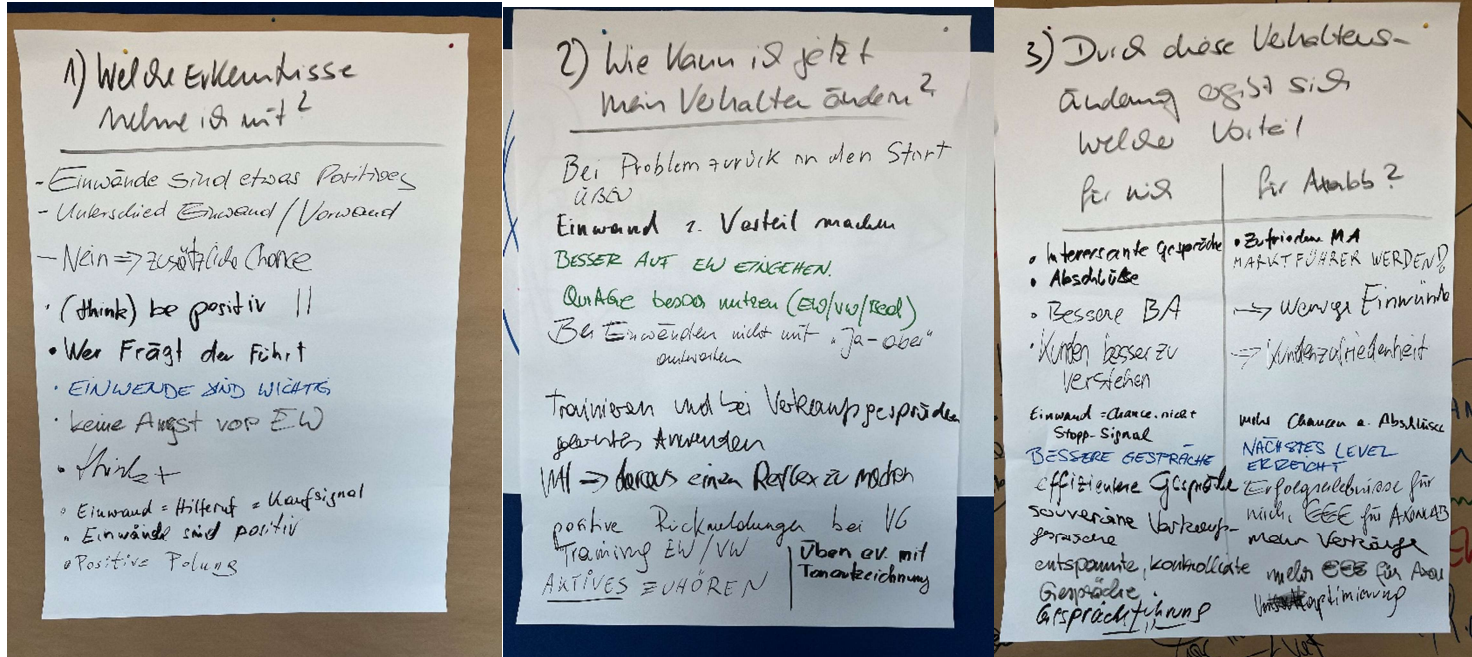 1) Welche Erkenntnisse
nehme ich mit?
- Einwände sind etwas Positives
- Unterschied Einwand / Vorwand
- Nein => zusätzliche Chance
• (think) be positiv !!
• Wer Frägt der Führt
• EINWENDE SIND WICHTIG
• keine Angst vor EW
• think +
• Einwand = Hilferuf = Kaufsignal
• Einwände sind positiv
• Positive Polung
2) Wie kann ich jetzt
mein Verhalten ändern?
Bei Problem zurück an den Start
ÜBEN
Einwand z. Vorteil machen
BESSER AUF EW EINGEHEN.
QuiAGe besser nutzen (EW/VW/Bed)
Bei Einwänden nicht mit "Ja-aber"
antworten
Trainieren und bei Verkaufsgesprächen
gelerntes Anwenden
=> daraus einen Reflex zu machen
positive Rückmeldungen bei VG
Training EW/VW
AKTIVES ZUHÖREN
Üben ev. mit
Tonaufzeichnung
3) Durch diese Verhaltens-
änderung ergibt sich
welcher Vorteil
für mich
für Axonlab?
• Interessante Gespräche
• Abschlüße
• Bessere BA
• Kunden besser zu
verstehen
Einwand = Chance. nicht
Stopp-Signal
BESSERE GESPRÄCHE
effizientere Gespräche
souveräne Verkaufs-
gespräche
entspannte, kontrollierte
Gespräche.
Gesprächführung
• Zufriedene MA
MARKTFÜHRER WERDEN!?
-> weniger Einwände
-> Kundenzufriedenheit
mehr Chancen a. Abschlüsse
NÄCHSTES LEVEL
ERREICHT
Erfolgserlebnisse für
mich, €€€ für AXONLAB
mehr Verkäufe
mehr €€€ für Axon
optimierung